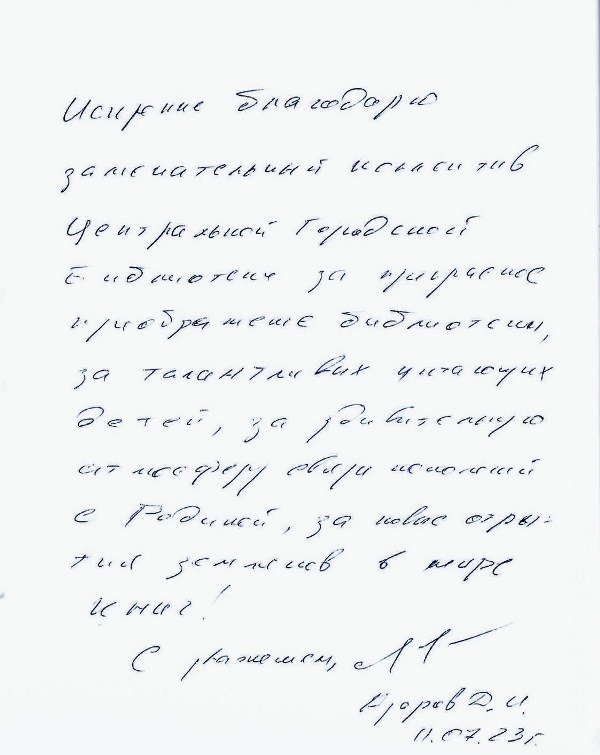 Искренне благодарю
замечательный коллектив
Центральной Городской
Библиотеки за прекрасное
преображение библиотеки,
за талантливых читающих
детей, за удивительную
атмосферу связи
с Родиной, за новые откры-
тия земляков в мире
книг!
С уважением,
Д. И.
11.07.23г.